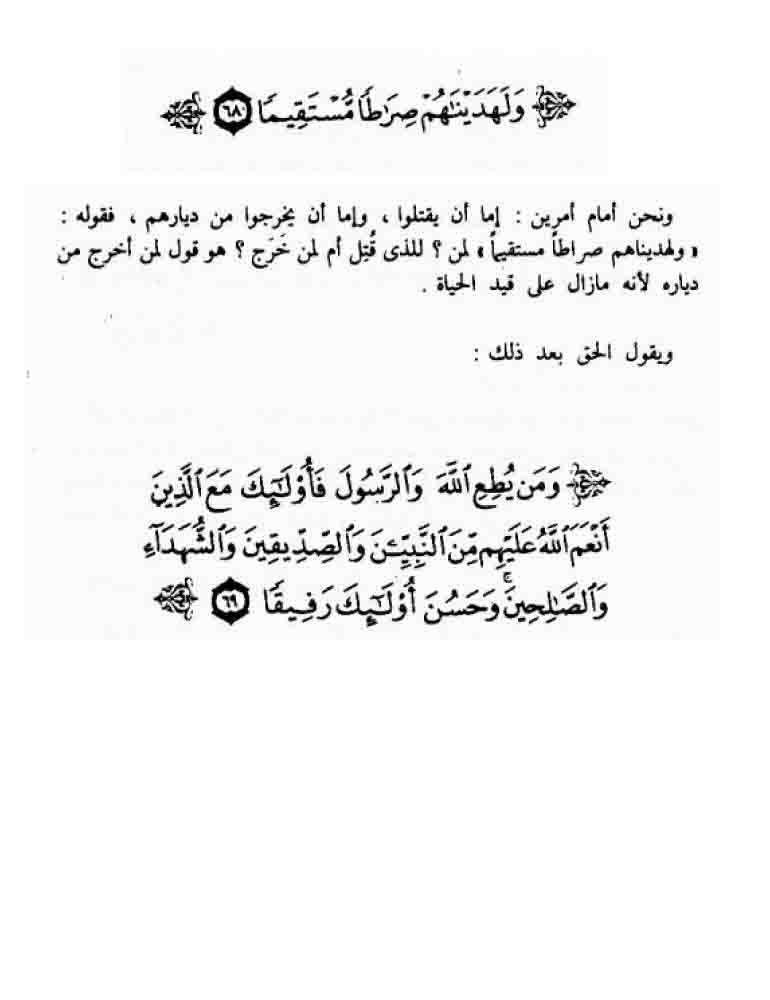 وَلَهَدَيْنَٰهُمْ صِرَٰطًا مُّسْتَقِيمًا ٦٨
ونحن أمام أمرين : إما أن يقتلوا ، وإما أن يخرجوا من ديارهم ، فقوله :
« ولهديناهم صراطاً مستقيماً » لمن ؟ للذى قُتِل أم لمن خَرَج ؟ هو قول لمن أخرج من
دياره لأنه مازال على قيد الحياة .
ويقول الحق بعد ذلك :
وَمَن يُطِعِ ٱللَّهَ وَٱلرَّسُولَ فَأُو۟لَٰٓئِكَ مَعَ ٱلَّذِينَ
أَنْعَمَ ٱللَّهُ عَلَيْهِم مِّنَ ٱلنَّبِيِّـۧنَ وَٱلصِّدِّيقِينَ وَٱلشُّهَدَآءِ
وَٱلصَّٰلِحِينَ ۚ وَحَسُنَ أُو۟لَٰٓئِكَ رَفِيقًا ٦٩